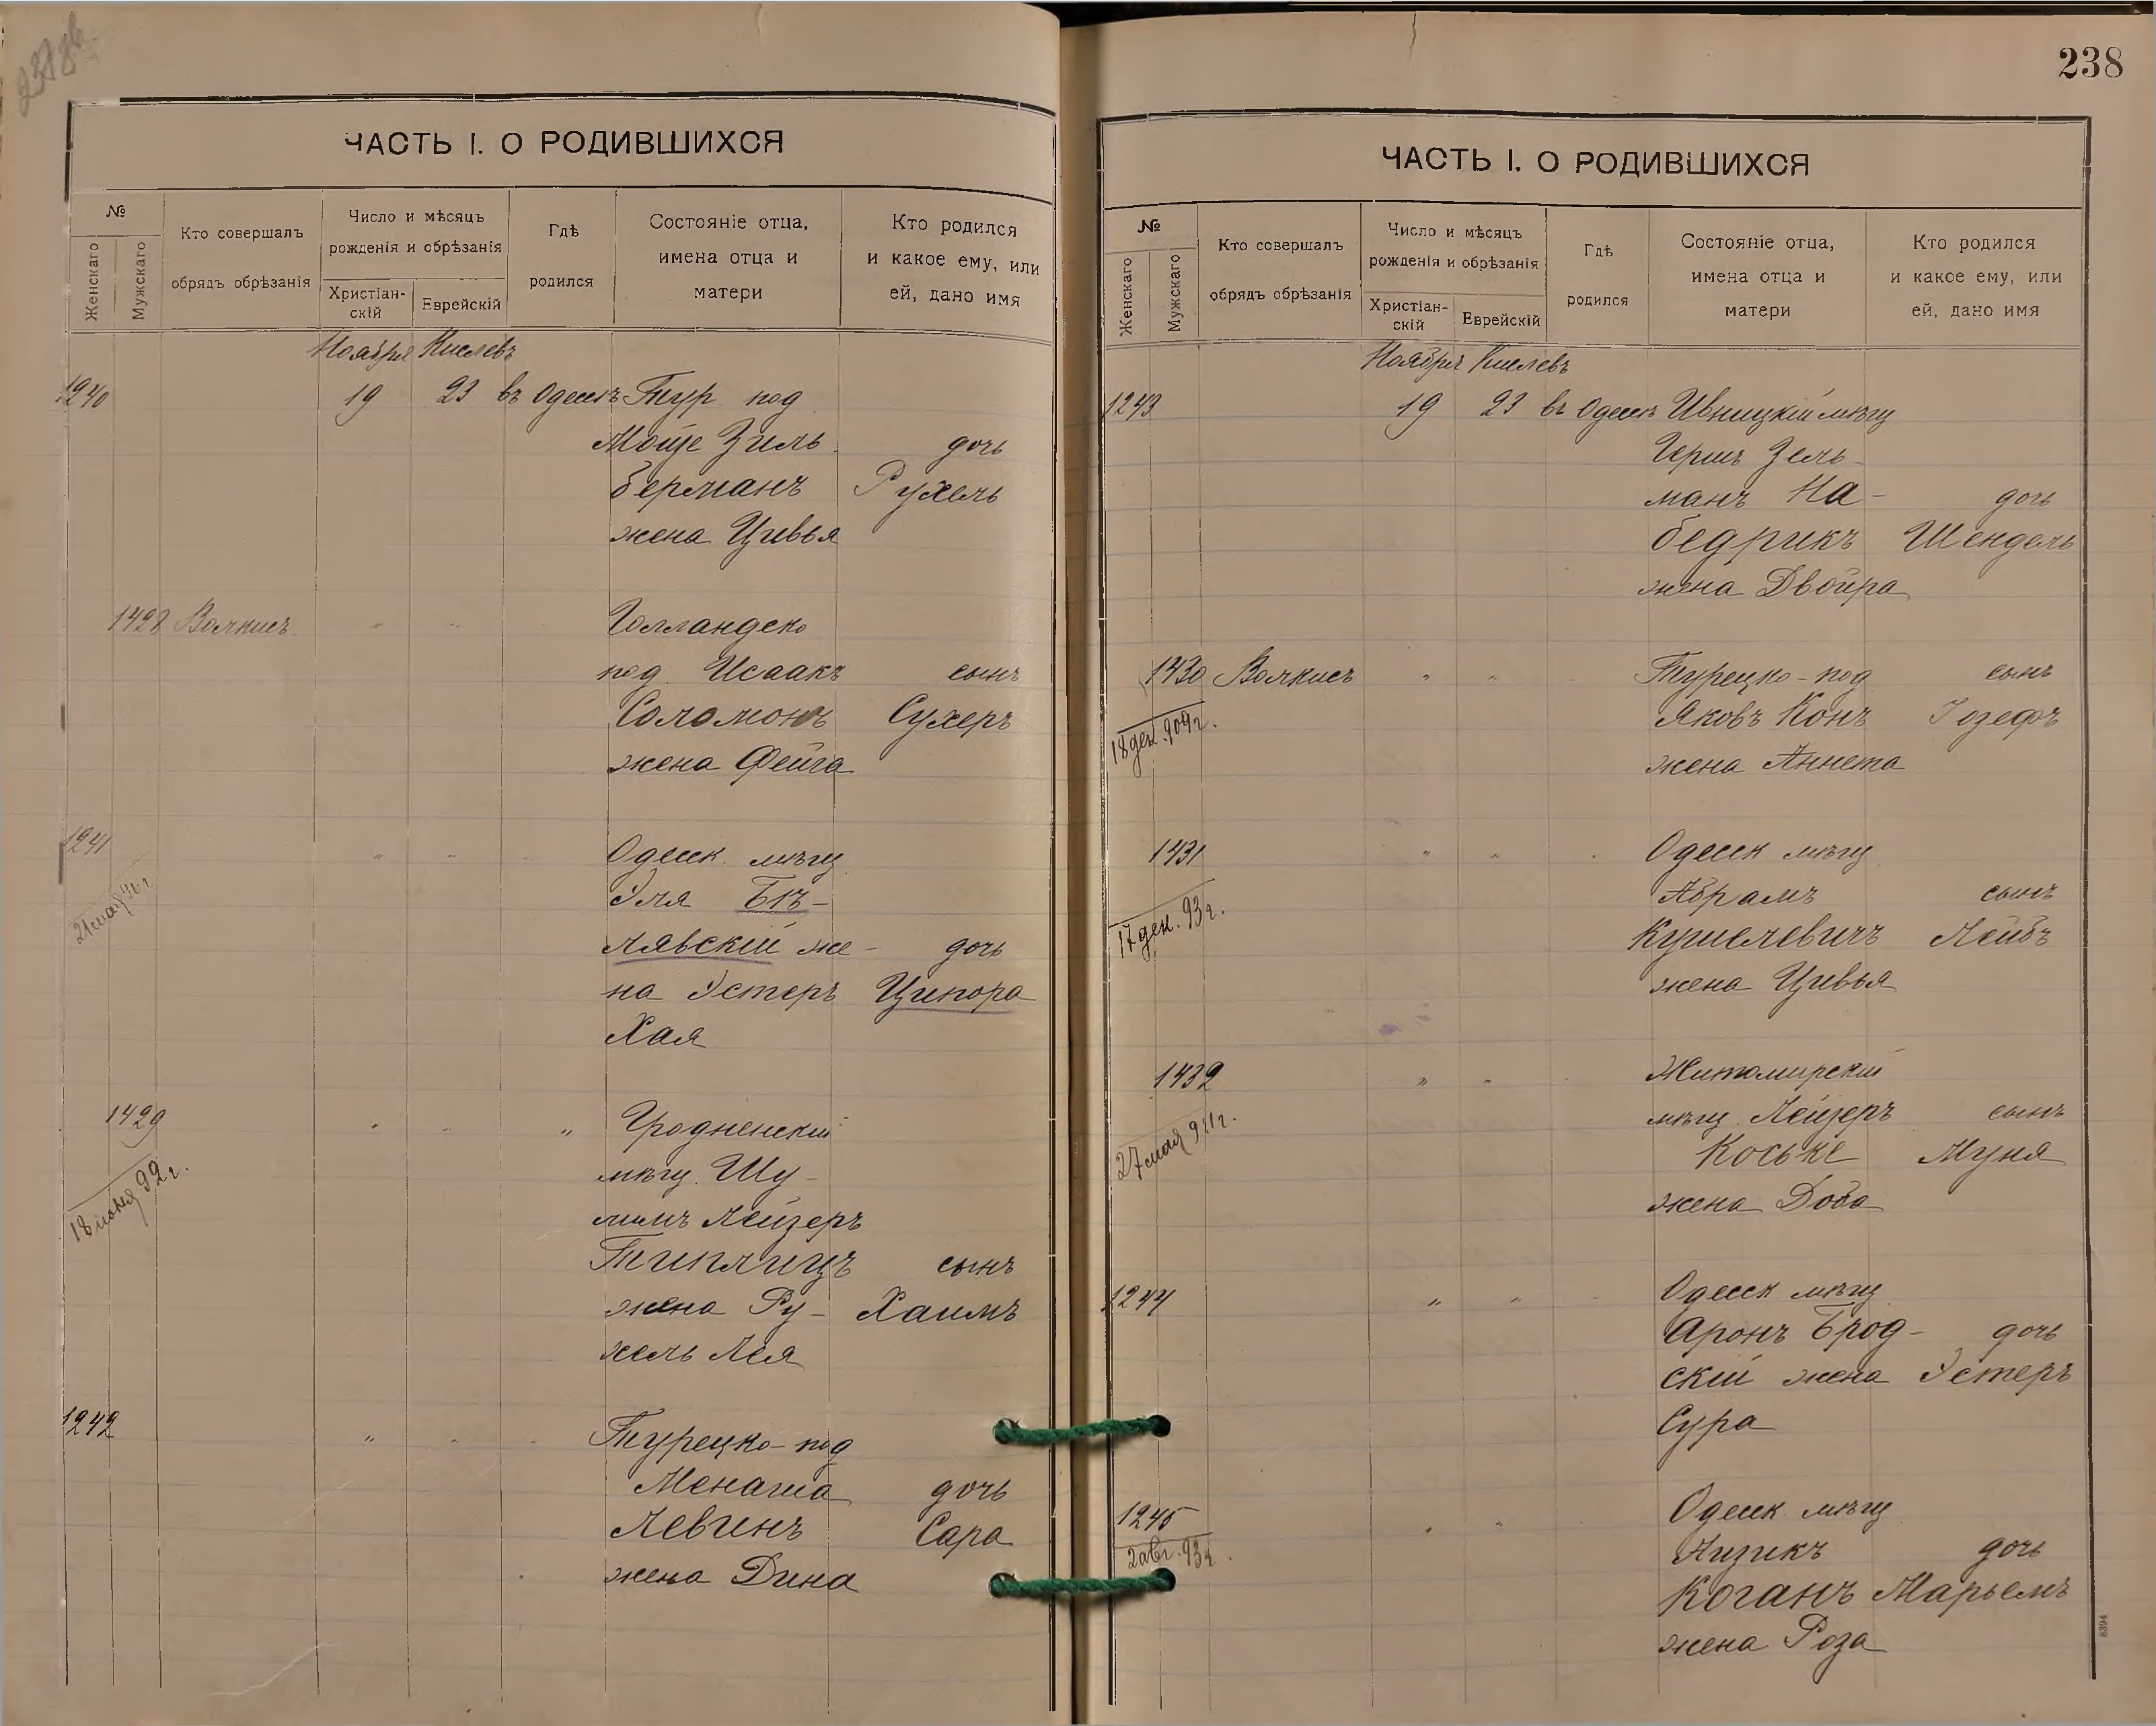 238
ЧАСТЬ I. О РОДИВШИХСЯ
№
Женскаго
Мужскаго
Кто совершалъ
обрядъ обрѣзанія
Число и мѣсяцъ
рожденія и обрѣзанія
Христіан-
скій
Еврейскій
Гдѣ
родился
Состояніе отца,
имена отца и
матери
Кто родился
и какое ему, или
ей, дано имя
Ноября Кислевъ
1240 19 23 въ Одессѣ Тур под
Мойше Зиль дочь
берманъ Рухель
жена Цивья
1428 Волкисъ " " Голландско
под. Исаакъ сынъ
Соломонъ Сухеръ
жена Фейга
1241 " " Одесск мѣщ
21 мая 96 г Эля Бѣ-
лявскій же- дочь
на Эстеръ Ципора
Хая
1429 " " " Гродненскій
мѣщ. Шу-
18 іюня 92 г. лимъ Лейзеръ
Типлицъ сынъ
жена Ру- Хаимъ
хель Лея
1242 " " Турецко-под
Менаша дочь
Левинъ Сара
жена Дина
ЧАСТЬ I. О РОДИВШИХСЯ
№
Женскаго
Мужскаго
Кто совершалъ
обрядъ обрѣзанія
Число и мѣсяцъ
рожденія и обрѣзанія
Христіан-
скій
Еврейскій
Гдѣ
родился
Состояніе отца,
имена отца и
матери
Кто родился
и какое ему, или
ей, дано имя
Ноября Кислевъ
1243 19 23 въ Одессѣ Ивницкій мѣщ
Гершъ Зель-
манъ На- дочь
бедрикъ Шендель
жена Двойра
1430 Волкисъ " " Турецко-под сынъ
18 дек. 909 г. Яковъ Конъ Іозефъ
жена Аннета
1431 " " Одесск мѣщ
17 дек. 93 г. Абрамъ сынъ
Кушелевичъ Лейбъ
жена Цивья
1432 " " Житомирскій
27 мая 911 г. мѣщ. Лейзеръ сынъ
Коське Муня
жена Доба
1244 " " Одесск мѣщ
Аронъ Брод- дочь
скій жена Эстеръ
Сура
1245 " " Одесск мѣщ
2 авг. 93 г. Айзикъ дочь
Коганъ Марьемъ
жена Роза
8394